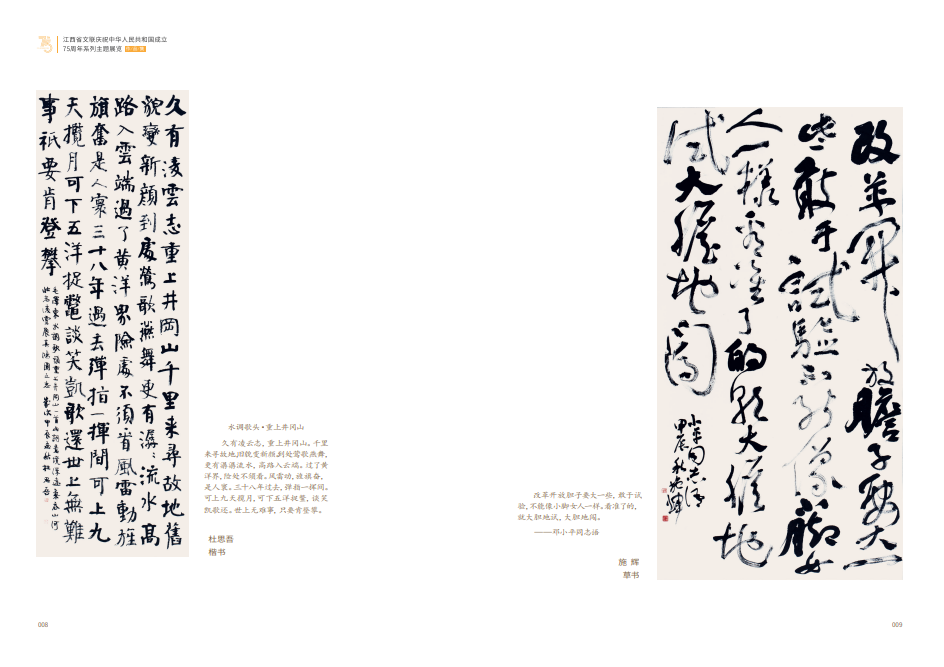 江西省文联庆祝中华人民共和国成立
75周年系列主题展览 作品集
久有凌雲志重上井岡山千里来尋故地舊
貌變新顔到處鶯歌燕舞更有潺〻流水高
路入雲端過了黄洋界險處不須看風雷動旌
旗奮是人寰三十八年過去彈指一揮間可上九
天攬月可下五洋捉鱉談笑凱歌還世上無難
事祇要肯登攀
水调歌头·重上井冈山
久有凌云志，重上井冈山。千里
来寻故地，旧貌变新颜。到处莺歌燕舞，
更有潺潺流水，高路入云端。过了黄
洋界，险处不须看。风雷动，旌旗奋，
是人寰。三十八年过去，弹指一挥间。
可上九天揽月，可下五洋捉鳖，谈笑
凯歌还。世上无难事，只要肯登攀。
杜思吾
楷书
008
改革開放膽子要大一
些敢于試驗不能像小脚女
人一樣看准了的就大膽地
試大膽地闖
小平同志語
甲辰秋施輝
改革开放胆子要大一些，敢于试
验，不能像小脚女人一样。看准了的，
就大胆地试，大胆地闯。
——邓小平同志语
施 辉
草书
009